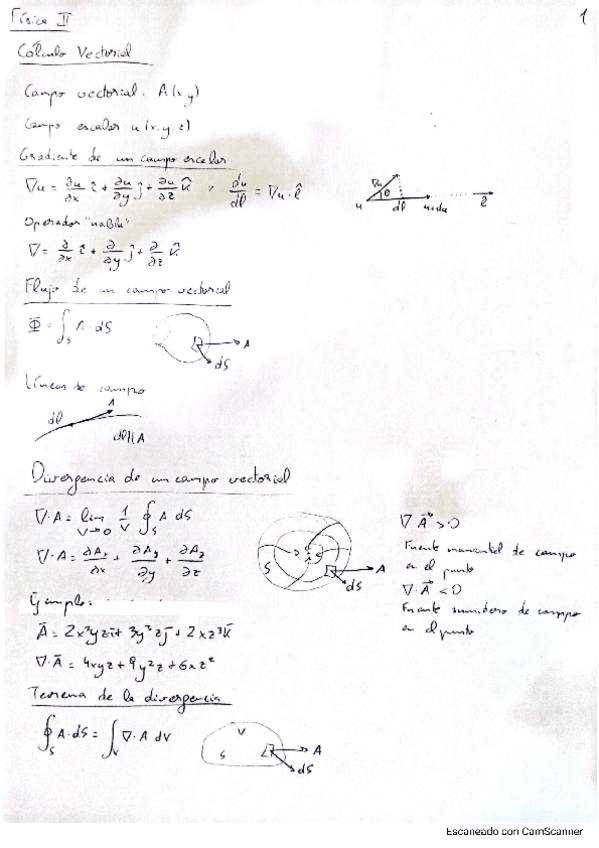 Física II
1
Cálculo Vectorial
Campo vectorial. A(x,y)
Campo escalar u(x,y,z)
Gradiente de un campo escalar
∇u = ∂u/∂x î + ∂u/∂y ĵ + ∂u/∂z k̂ , du/dl = ∇u · l̂
∇u θ
u dl u+du l̂
Operador "nabla"
∇ = ∂/∂x î + ∂/∂y ĵ + ∂/∂z k̂
Flujo de un campo vectorial
Φ = ∫S A · dS
A
dS
Líneas de campo
dl A
dl||A
Divergencia de un campo vectorial
∇·A = lim V→0 1/V ∮S A dS
∇·A = ∂Ax/∂x + ∂Ay/∂y + ∂Az/∂z
S A
dS
∇ A⃗ > 0
Fuente manantial de campo
en el punto
∇·A⃗ < 0
Fuente sumidero de campo
en el punto
Ejemplo:
Ā = 2x²yz ī + 3y³z j̄ + 2xz³ k̄
∇·Ā = 4xyz + 9y²z + 6xz²
Teorema de la divergencia
∮S A·dS = ∫V ∇·A dV
V
S A
dS
Escaneado con CamScanner